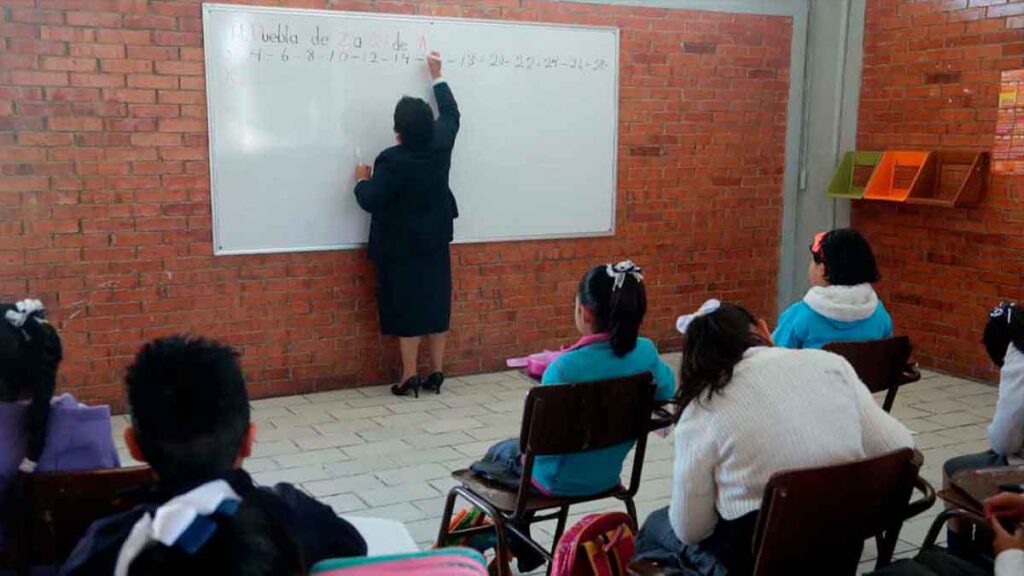 Puebla de 2 a de
4-6-8-10-12-14- -18-20-22-24-26-28-